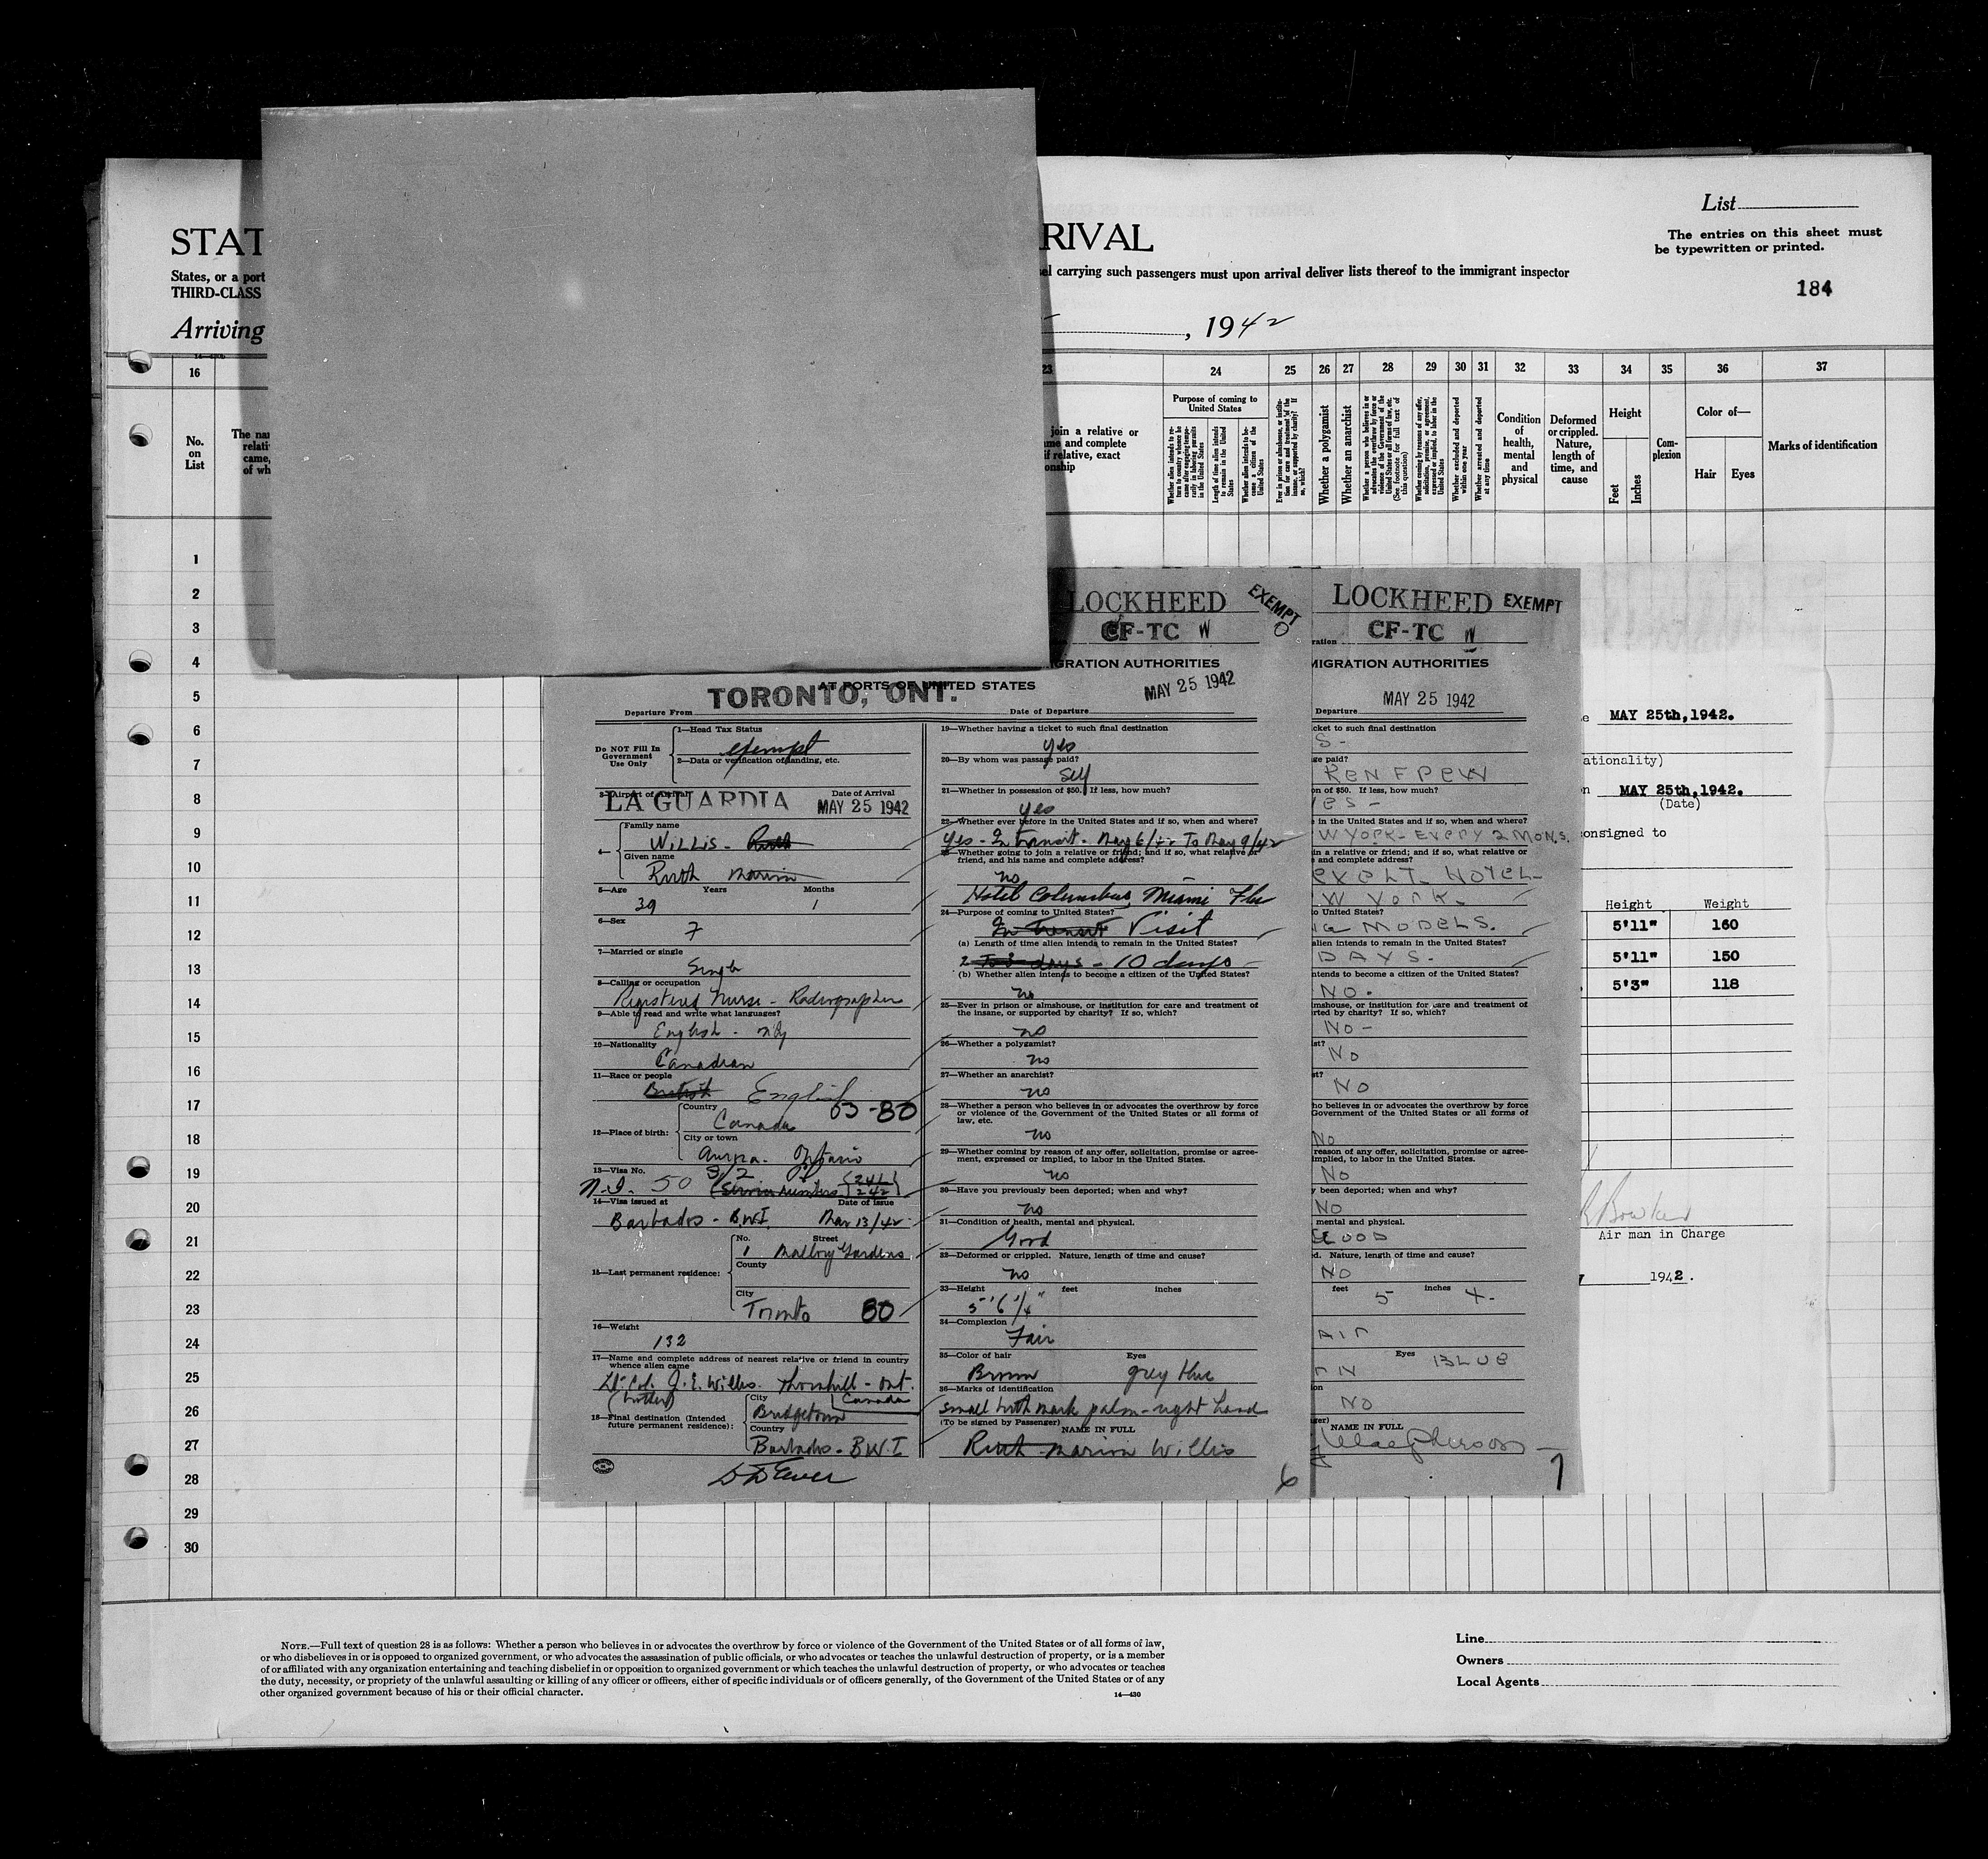 List
The entries on this sheet must
be typewritten or printed.
184
STAT
RIVAL
States, or a port
el carrying such passengers must upon arrival deliver lists thereof to the immigrant inspector
THIRD-CLASS
Arriving
, 1942
16 23 24 25 26 27 28 29 30 31 32 33 34 35 36 37
No.
on
List
The na
relati
came,
of wh
join a relative or
me and complete
if relative, exact
onship
Purpose of coming to
United States
Whether a polygamist
Whether an anarchist
Condition
of
health,
mental
and
physical
Deformed
or crippled.
Nature,
length of
time, and
cause
Height
Feet
Inches
Com-
plexion
Color of—
Hair Eyes
Marks of identification
1
2
3
4
5
6
7
8
9
10
11
12
13
14
15
16
17
18
19
20
21
22
23
24
25
26
27
28
29
30
LOCKHEED EXEMPT
CF-TC W
IGRATION AUTHORITIES
AT PORTS OF UNITED STATES
TORONTO, ONT.
MAY 25 1942
Departure From Date of Departure
Do NOT Fill In
Government
Use Only
1—Head Tax Status
exempt
2—Data or verification of landing, etc.
3—Airport of Arrival Date of Arrival
LA GUARDIA MAY 25 1942
4— Family name
Willis - Ruth
Given name
Ruth Marion
5—Age Years Months
39 1
6—Sex
F
7—Married or single
Single
8—Calling or occupation
Registered Nurse - Radiographer
9—Able to read and write what languages?
English - only
10—Nationality
Canadian
11—Race or people
British English
03-80
12—Place of birth: Country
Canada
City or town
Aurora. Ontario
13—Visa No.
N.I. 50 3/2
14—Visa issued at Date of issue
Barbados - B.W.I. Mar 13/42
15—Last permanent residence: No. Street
1 Mallory Gardens
County
City
Toronto 80
16—Weight
132
17—Name and complete address of nearest relative or friend in country
whence alien came
Lt-Col. J. E. Willis. Thornhill - Ont.
(brother) Canada
18—Final destination (Intended
future permanent residence): City
Bridgetown
Country
Barbados - B.W.I
19—Whether having a ticket to such final destination
yes
20—By whom was passage paid?
Self
21—Whether in possession of $50. If less, how much?
yes
22—Whether ever before in the United States and if so, when and where?
yes - In transit - May 6/42 To May 9/42
23—Whether going to join a relative or friend; and if so, what relative or
friend, and his name and complete address?
no
Hotel Columbus, Miami Fla
24—Purpose of coming to United States?
In transit Visit
(a) Length of time alien intends to remain in the United States?
2 To 3 days - 10 days
(b) Whether alien intends to become a citizen of the United States?
no
25—Ever in prison or almshouse, or institution for care and treatment of
the insane, or supported by charity? If so, which?
no
26—Whether a polygamist?
no
27—Whether an anarchist?
no
28—Whether a person who believes in or advocates the overthrow by force
or violence of the Government of the United States or all forms of
law, etc.
no
29—Whether coming by reason of any offer, solicitation, promise or agree-
ment, expressed or implied, to labor in the United States.
no
30—Have you previously been deported; when and why?
no
31—Condition of health, mental and physical.
Good
32—Deformed or crippled. Nature, length of time and cause?
no
33—Height feet inches
5' 6 1/4"
34—Complexion
Fair
35—Color of hair Eyes
Brown grey blue
36—Marks of identification
small birth mark palm - right hand
(To be signed by Passenger)
NAME IN FULL
Ruth Marion Willis
6
LOCKHEED EXEMPT
CF-TC W
ration
MIGRATION AUTHORITIES
MAY 25 1942
Departure
icket to such final destination
S -
ge paid?
RENFREW
on of $50. If less, how much?
yes -
in the United States and if so, when and where?
W YORK - EVERY 2 MONS.
in a relative or friend; and if so, what relative or
and complete address?
HOTEL -
W YORK -
to United States?
MODELS.
alien intends to remain in the United States?
DAYS -
ntends to become a citizen of the United States?
NO.
lmshouse, or institution for care and treatment of
rted by charity? If so, which?
NO -
ist?
NO
st?
NO
ho believes in or advocates the overthrow by force
Government of the United States or all forms of
NO
reason of any offer, solicitation, promise or agree-
implied, to labor in the United States.
NO
y been deported; when and why?
NO
mental and physical.
GOOD
d. Nature, length of time and cause?
NO
feet inches
5 4 -
AIR
Eyes
BLUE
ion
NO
ger)
NAME IN FULL
7
e MAY 25th,1942.
ationality)
n MAY 25th,1942.
(Date)
onsigned to
Height Weight
5'11" 160
5'11" 150
5'3" 118
Air man in Charge
1942.
NOTE.—Full text of question 28 is as follows: Whether a person who believes in or advocates the overthrow by force or violence of the Government of the United States or of all forms of law,
or who disbelieves in or is opposed to organized government, or who advocates the assassination of public officials, or who advocates or teaches the unlawful destruction of property, or is a member
of or affiliated with any organization entertaining and teaching disbelief in or opposition to organized government or which teaches the unlawful destruction of property, or who advocates or teaches
the duty, necessity, or propriety of the unlawful assaulting or killing of any officer or officers, either of specific individuals or of officers generally, of the Government of the United States or of any
other organized government because of his or their official character.
14—430
Line
Owners
Local Agents